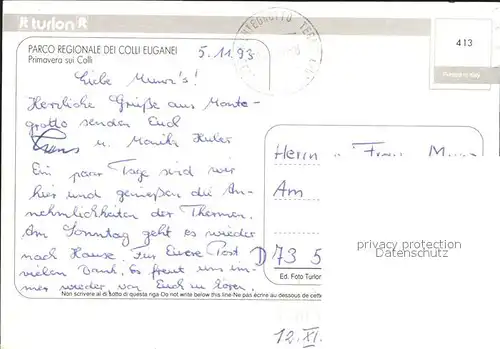 turlon
413
PARCO REGIONALE DEI COLLI EUGANEI
Primavera sui Colli
5.11.93
Liebe Munz's!
Herzliche Grüße aus Monte-
grotto senden Euch
u. Monika Huber
Ein paar Tage sind wir
hier und genießen die An-
nehmlichkeiten der Thermen.
Am Sonntag geht es wieder
nach Hause. Für Euere Post
vielen Dank. Es freut uns im-
mer wieder von Euch zu hören.
Herrn u. Frau
Am
D 73 5
privacy protection
Datenschutz
Ed. Foto Turlon
Non scrivere al di sotto di questa riga-Do not write below this line-Ne pas écrire au dessous de cette
12.XI.